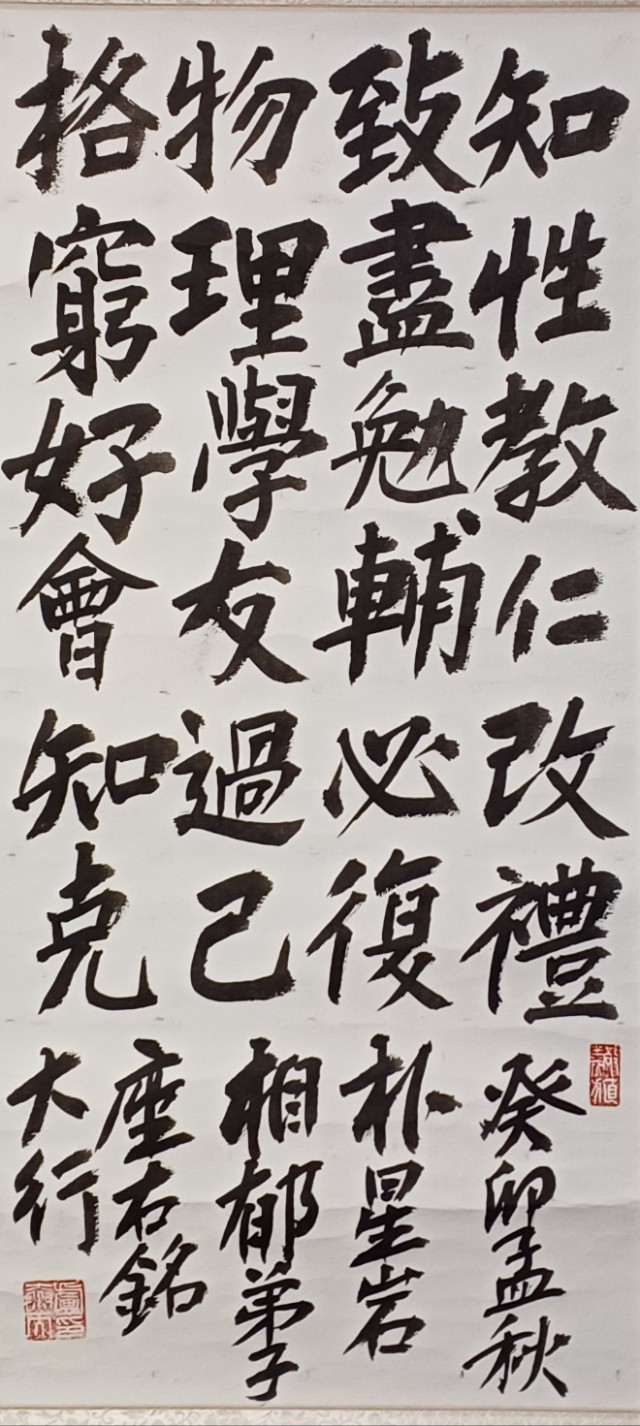 格物致知
窮理盡性
好學勉教
會友輔仁
知過必改
克己復禮
癸卯孟秋
朴星岩
相郁弟子
座右銘
大行